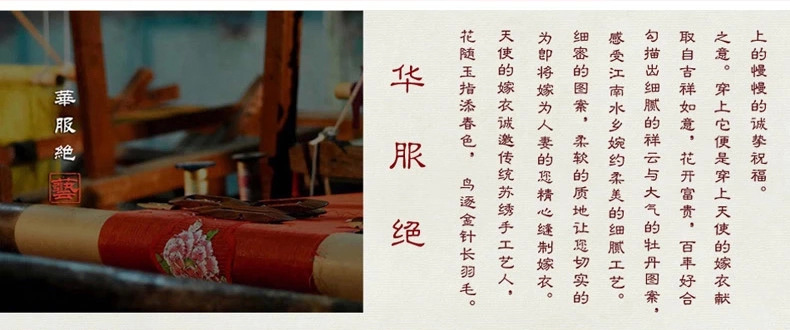 華服絕
藝
华服绝
花随玉指添春色，鸟逐金针长羽毛。
天使的嫁衣诚邀传统苏绣手工艺人，
为即将嫁为人妻的您精心缝制嫁衣。
细密的图案，柔软的质地让您切实的
感受江南水乡婉约柔美的细腻工艺。
勾描出细腻的祥云与大气的牡丹图案，
取自吉祥如意，花开富贵，百年好合
之意。穿上它便是穿上天使的嫁衣献
上的慢慢的诚挚祝福。